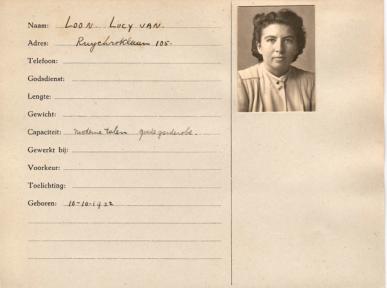 Naam: LOON LUCY VAN.
Adres: Ruychroklaan 105.
Telefoon:
Godsdienst:
Lengte:
Gewicht:
Capaciteit: moderne talen goede garderobe.
Gewerkt bij:
Voorkeur:
Toelichting:
Geboren: 10-10-1922